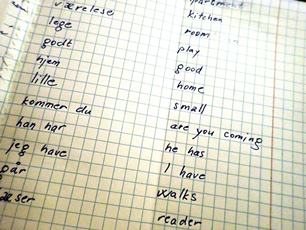 værelse
kitchen
lege
room
godt
play
hjem
good
lille
home
kommer du
small
han har
are you coming
jeg have
he has
går
I have
læser
walks
reader